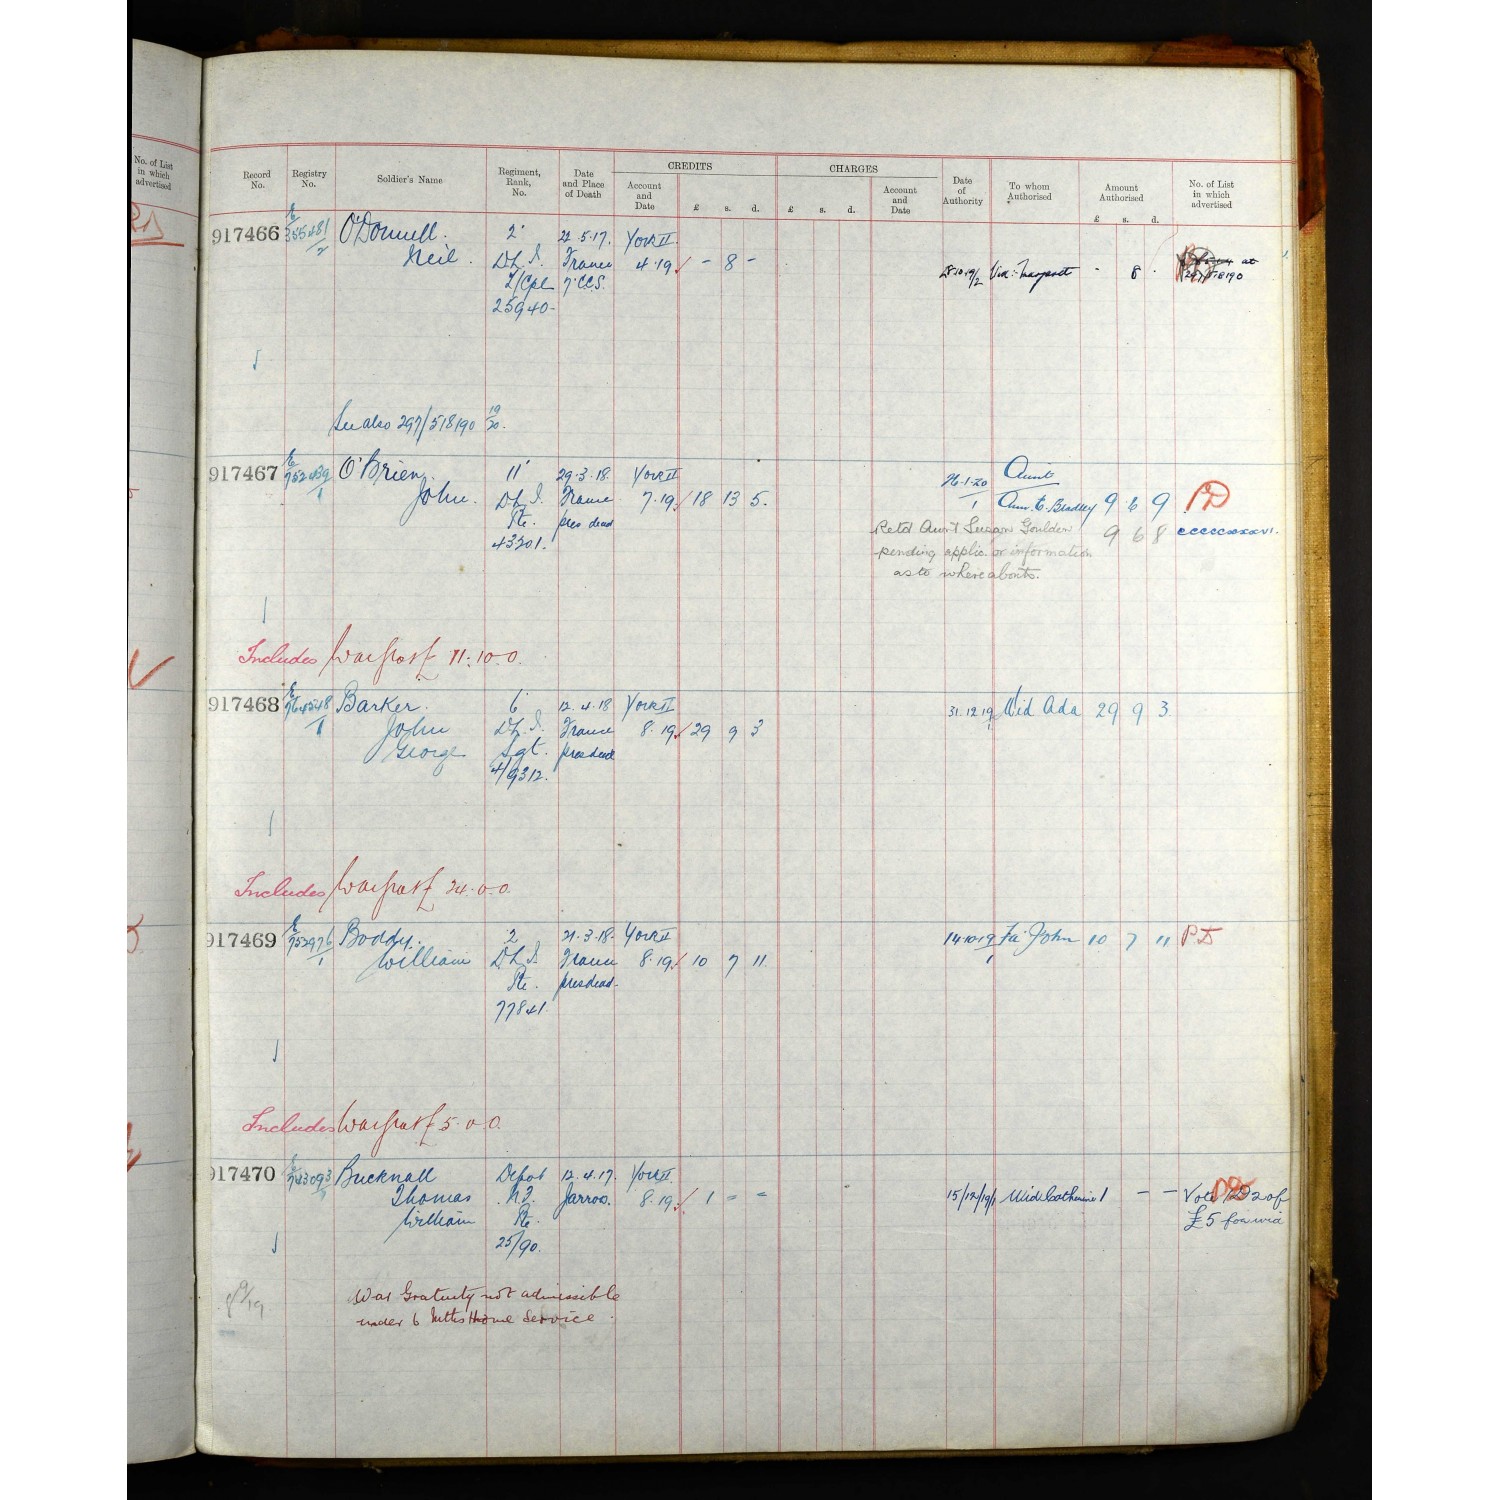 No. of List
in which
advertised
CREDITS
CHARGES
Record No.
Registry No.
Soldier's Name
Regiment, Rank, No.
Date and Place of Death
Account and Date
£ s. d.
£ s. d.
Account and Date
Date of Authority
To whom Authorised
Amount Authorised
£ s. d.
No. of List in which advertised
917466 E/355481/2 O'Donnell. 2' 22.5.17. York II.
Neil. D.L.I. France 4.19 - 8 - 28.10.19/2 Wid: Margaret - 8 -
L/Cpl 7.CCS.
25940.
See also 297/518190 19/20.
917467 E/752439/1 O'Brien 11' 29.3.18. York II 26.1.20/1 Aunt
John. D.L.I. France 7.19. 18 13 5. Ann. E. Bradley 9 6 9 PD
Pte. pres dead Retd Aunt Susan Goulden 9 6 8 cccccxxxvi.
43201. pending applic. or information
as to whereabouts.
Includes War Grat £ 11.10.0.
917468 Barker. 6' 12.4.18 York II 31.12.19 Wid Ada 29 9 3
John D.L.I. France 8.19. 29 9 3
George Sgt. pres dead
4/9312.
Includes War Grat £ 24.0.0.
917469 E/752976/1 Boddy. 2 21.3.18. York II 14.10.19/1 Fa' John 10 7 11 PD
William D.L.I. France 8.19. 10 7 11.
Pte. pres dead.
77841.
Includes War Grat £ 5.0.0.
917470 E/743093/1 Bucknall Depot 12.4.17. York II.
Thomas N.F. Jarrow. 8.19. 1 - - 15/12/19/1 Wid Catherine 1 - - Vote 22 of
William Pte. £5 for wid
25/90.
8 9/19
War Gratuity not admissible
under 6 Mths Home Service.